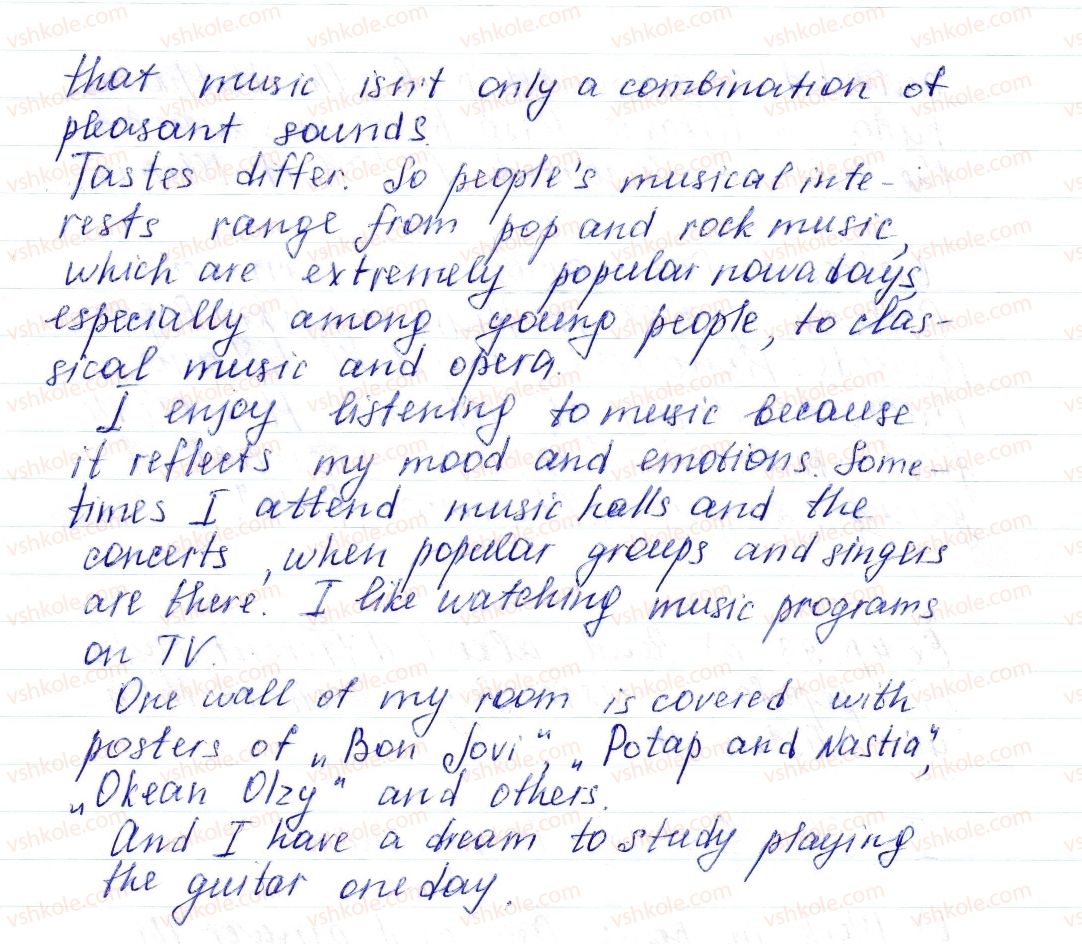 that music isn't only a combination of
pleasant sounds.
Tastes differ. So people's musical inte-
rests range from pop and rock music,
which are extremely popular nowadays,
especially among young people, to clas-
sical music and opera.
I enjoy listening to music because
it reflects my mood and emotions. Some-
times I attend music halls and the
concerts, when popular groups and singers
are there. I like watching music programs
on TV.
One wall of my room is covered with
posters of „Bon Jovi", „Potap and Nastia",
„Okean Olzy" and others.
And I have a dream to study playing
the guitar one day.